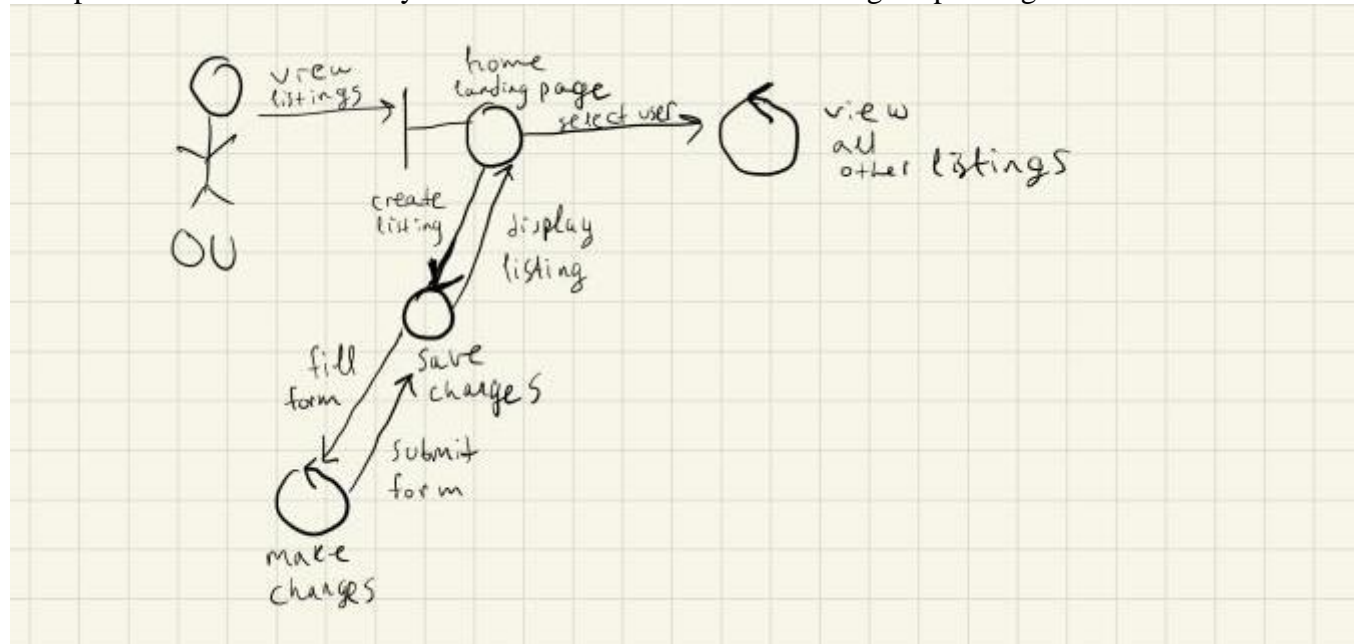 view
listings
home
landing page
select user
view
all
other listings
OU
create
listing
display
listing
fill
form
save
changes
submit
form
make
changes